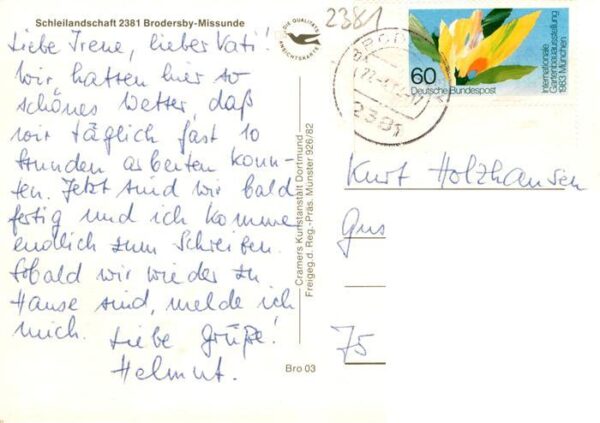 Schleilandschaft 2381 Brodersby-Missunde
DIE QUALITÄTS
ANSICHTSKARTE
Liebe Irene, lieber Vati!
Wir hatten hier so
schönes Wetter, daß
wir täglich fast 10
Stunden arbeiten konn-
ten. Jetzt sind wir bald
fertig und ich komme
endlich zum Schreiben.
Sobald wir wieder zu
Hause sind, melde ich
mich. Liebe Grüße!
Helmut.
Cramers Kunstanstalt Dortmund
Freigeg.d. Reg.-Präs. Münster 926/82
Bro 03
2381
2381
60
Deutsche Bundespost
Internationale
Gartenbauausstellung
1983 München
Kurt Holzhausen
Gus
75